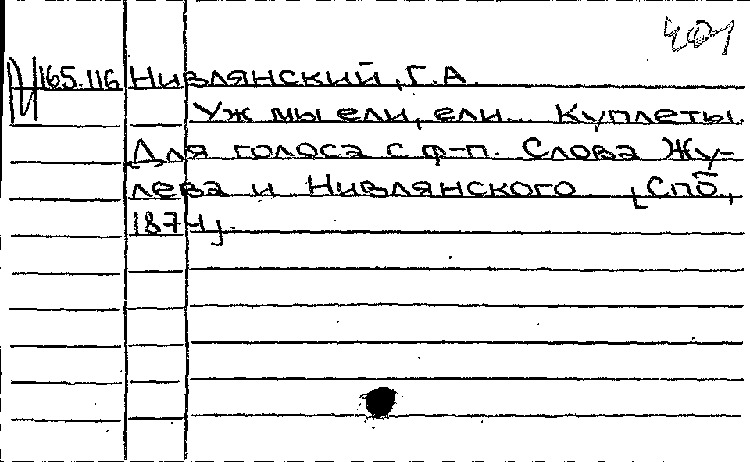 401
М 165.116 Нивлянский, Г.А.
Уж мы ели, ели... Куплеты.
Для голоса с ф-п. Слова Жу-
лева и Нивлянского [Спб,
1874].